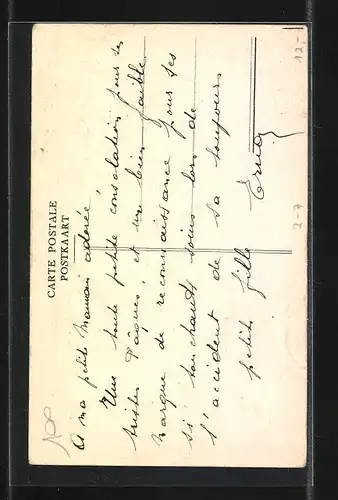 CARTE POSTALE
POSTKAART
A ma petite Maman adorée,
Une toute petite consolation pour ses
tristes Pâques, et un bien faible
marque de reconnaissance pour ses
si touchants soins lors de
l'accident de sa toujours
petite fille
12.-
2-7